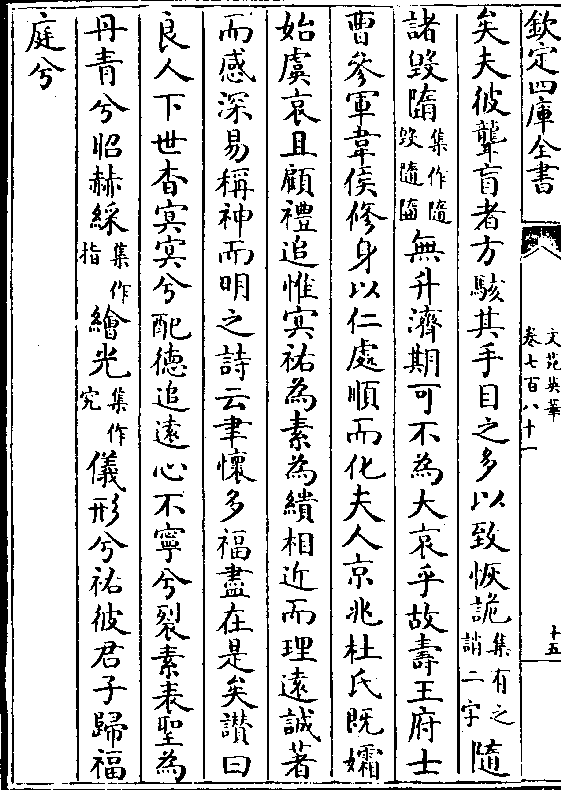 欽定四庫全書
文苑英華
卷七百八十一
十五
矣夫彼聾盲者方駭其手目之多以致恢詭集有之誚二字隨
諸毀隋集作隨毀隨墮無升濟期可不為大哀乎故壽王府士
曹參軍韋侯修身以仁處順而化夫人京兆杜氏既孀
始虞哀且顧禮追惟冥祐為素為繢相近而理遠誠著
而感深易稱神而明之詩云聿懷多福盡在是矣讃曰
良人下世杳冥冥兮配德追遠心不寧兮裂素表聖為
丹青兮昭赫綵集作指繪光集作究儀形兮祐彼君子歸福
庭兮